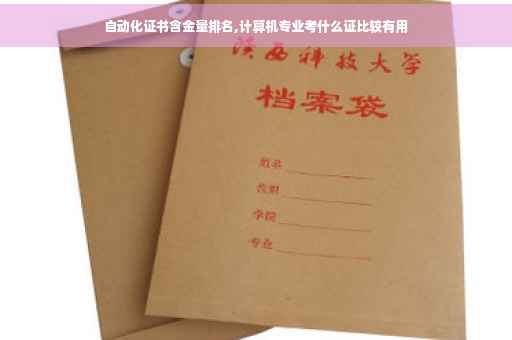 自动化证书含金量排名,计算机专业考什么证比较有用
陕西科技大学
档案袋
姓名
性别
学院
专业